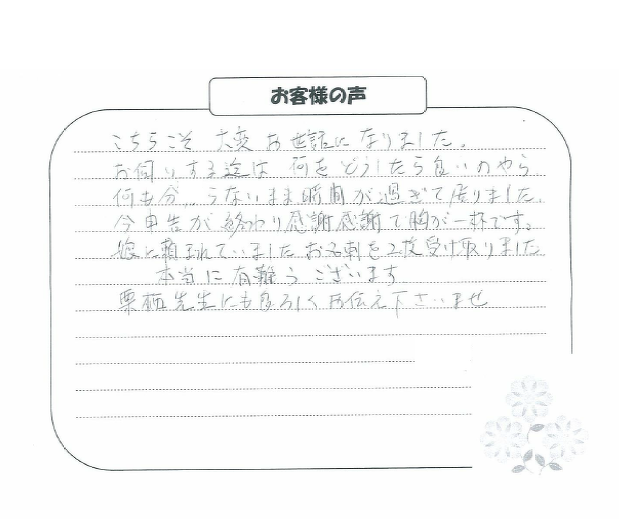 お客様の声
こちらこそ 大変 お世話になりました。
お伺いする迄は 何を どうしたら良いのやら
何も分からないまま時間が過ぎて居りました。
今申告が終わり感謝感謝で胸が一杯です。
娘に頼まれていましたお名刺を2枚受け取りました
本当に有難うございます
栗栖先生にも宜ろしくお伝え下さいませ